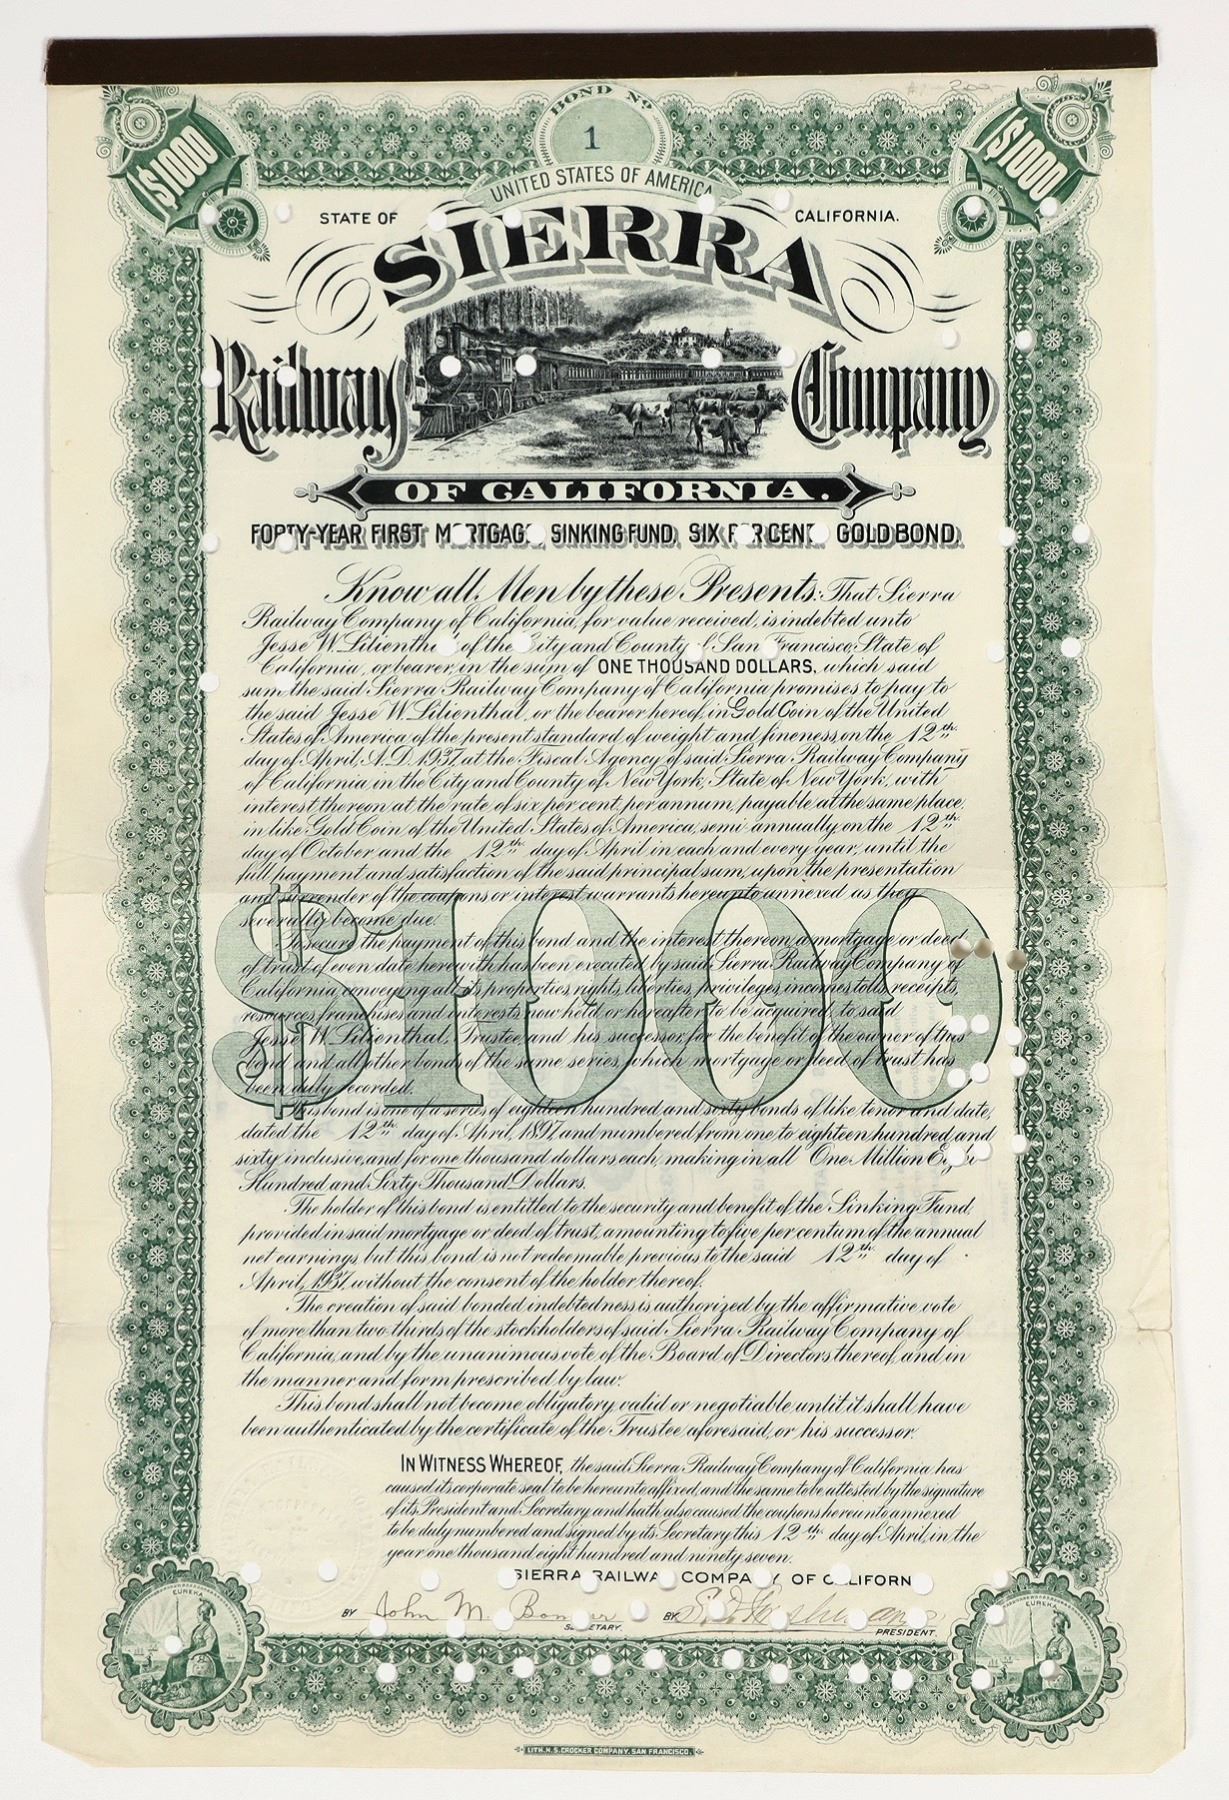 BOND No
1
UNITED STATES OF AMERICA
$1000
$1000
STATE OF CALIFORNIA.
SIERRA
Railway Company
OF CALIFORNIA.
FORTY-YEAR FIRST MORTGAGE SINKING FUND, SIX PER CENT. GOLD BOND.
Know all Men by these Presents: That Sierra
Railway Company of California, for value received, is indebted unto
Jesse W. Lilienthal of the City and County of San Francisco, State of
California, or bearer, in the sum of ONE THOUSAND DOLLARS, which said
sum the said Sierra Railway Company of California promises to pay to
the said Jesse W. Lilienthal, or the bearer hereof, in Gold Coin of the United
States of America of the present standard of weight and fineness, on the 12th
day of April, A.D. 1937, at the Fiscal Agency of said Sierra Railway Company
of California in the City and County of New York, State of New York, with
interest thereon at the rate of six per cent, per annum, payable at the same place,
in like Gold Coin of the United States of America, semi-annually, on the 12th
day of October and the 12th day of April in each and every year, until the
full payment and satisfaction of the said principal sum, upon the presentation
and surrender of the coupons or interest warrants hereunto annexed as they
severally become due.
$1000
To secure the payment of this bond and the interest thereon a mortgage or deed
of trust of even date herewith has been executed by said Sierra Railway Company of
California, conveying all its properties, rights, liberties, privileges, incomes, tolls, receipts,
resources, franchises and interests now held, or hereafter to be acquired, to said
Jesse W. Lilienthal, Trustee, and his successor, for the benefit of the owner of this
bond and all other bonds of the same series, which mortgage or deed of trust has
been duly recorded.
This bond is one of a series of eighteen hundred and sixty bonds of like tenor and date,
dated the 12th day of April, 1897, and numbered from one to eighteen hundred and
sixty inclusive, and for one thousand dollars each, making in all One Million Eight
Hundred and Sixty Thousand Dollars.
The holder of this bond is entitled to the security and benefit of the Sinking Fund,
provided in said mortgage or deed of trust, amounting to five per centum of the annual
net earnings, but this bond is not redeemable previous to the said 12th day of
April, 1937, without the consent of the holder thereof.
The creation of said bonded indebtedness is authorized by the affirmative vote
of more than two-thirds of the stockholders of said Sierra Railway Company of
California, and by the unanimous vote of the Board of Directors thereof, and in
the manner and form prescribed by law.
This bond shall not become obligatory, valid or negotiable until it shall have
been authenticated by the certificate of the Trustee aforesaid, or his successor.
IN WITNESS WHEREOF, the said Sierra Railway Company of California has
caused its corporate seal to be hereunto affixed, and the same to be attested by the signature
of its President and Secretary and hath also caused the coupons hereunto annexed
to be duly numbered and signed by its Secretary this 12th day of April, in the
year one thousand eight hundred and ninety seven.
SIERRA RAILWAY COMPANY OF CALIFORNIA
BY John M. BY
SECRETARY. PRESIDENT.
EUREKA
EUREKA
LITH. H. S. CROCKER COMPANY, SAN FRANCISCO.